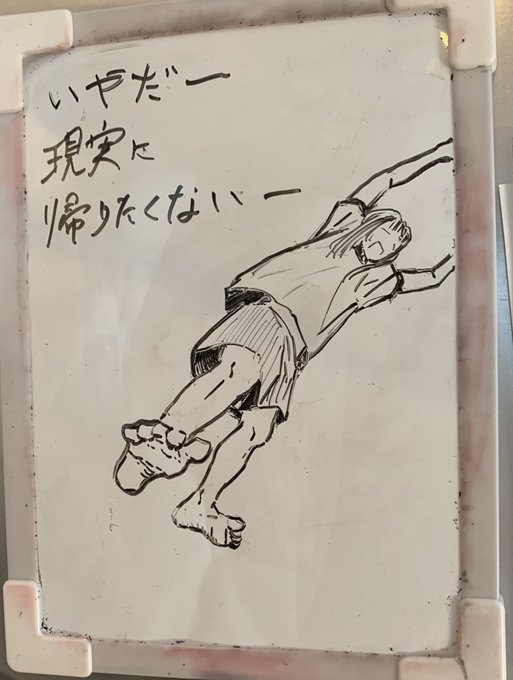 いやだー
現実に
帰りたくないー